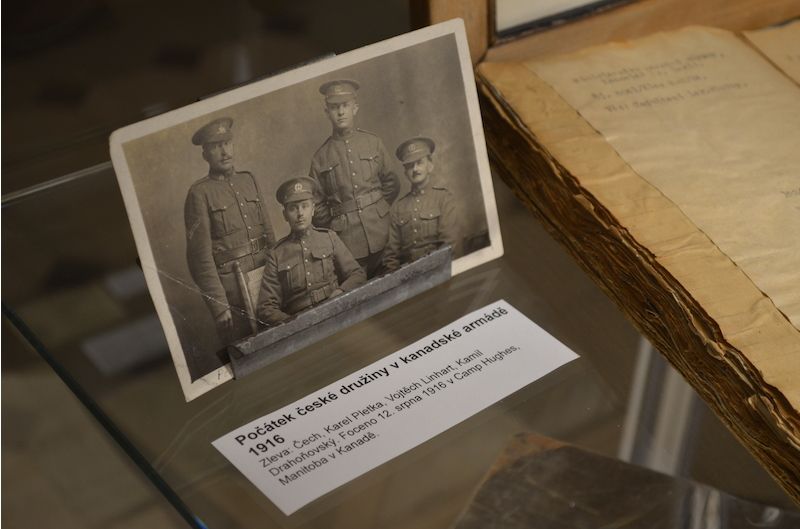 Počátek české družiny v kanadské armádě
1916
Zleva: Čech, Karel Pletka, Vojtěch Linhart, Kamil
Drahoňovský. Foceno 12. srpna 1916 v Camp Hughes,
Manitoba v Kanadě.